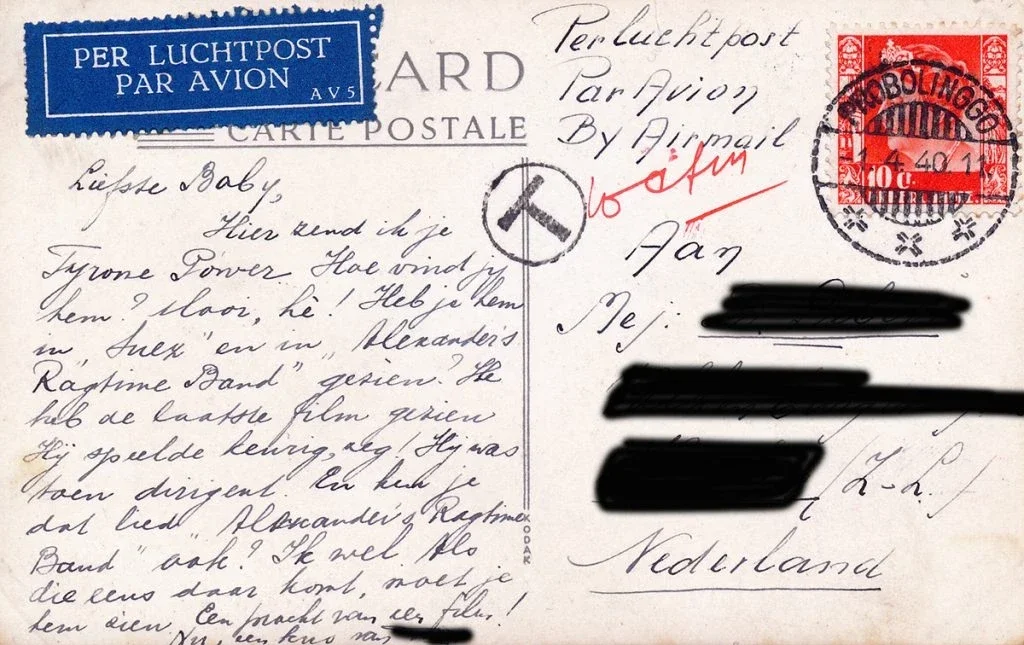 PER LUCHTPOST
PAR AVION
AV5
ARD
CARTE POSTALE
Per luchtpost
Par Avion
By Airmail
T
PROBOLINGGO
-1.4.40.11
10 c
Liefste Baby,
Hier zend ik je
Tyrone Power. Hoe vind jy
hem? Mooi, hè! Heb je hem
in „Suez" en in „Alexander's
Ragtime Band" gezien? Ik
heb de laatste film gezien
Hij speelde keurig, zeg! Hij was
toen dirigent. En ken je
dat lied Alexander's Ragtime
Band" ook? Ik wel. Als
die eens daar komt, moet je
hem zien. Een pracht van een film!
Nu, een kus van
KODAK
Aan
Mej:
(Z-L.)
Nederland